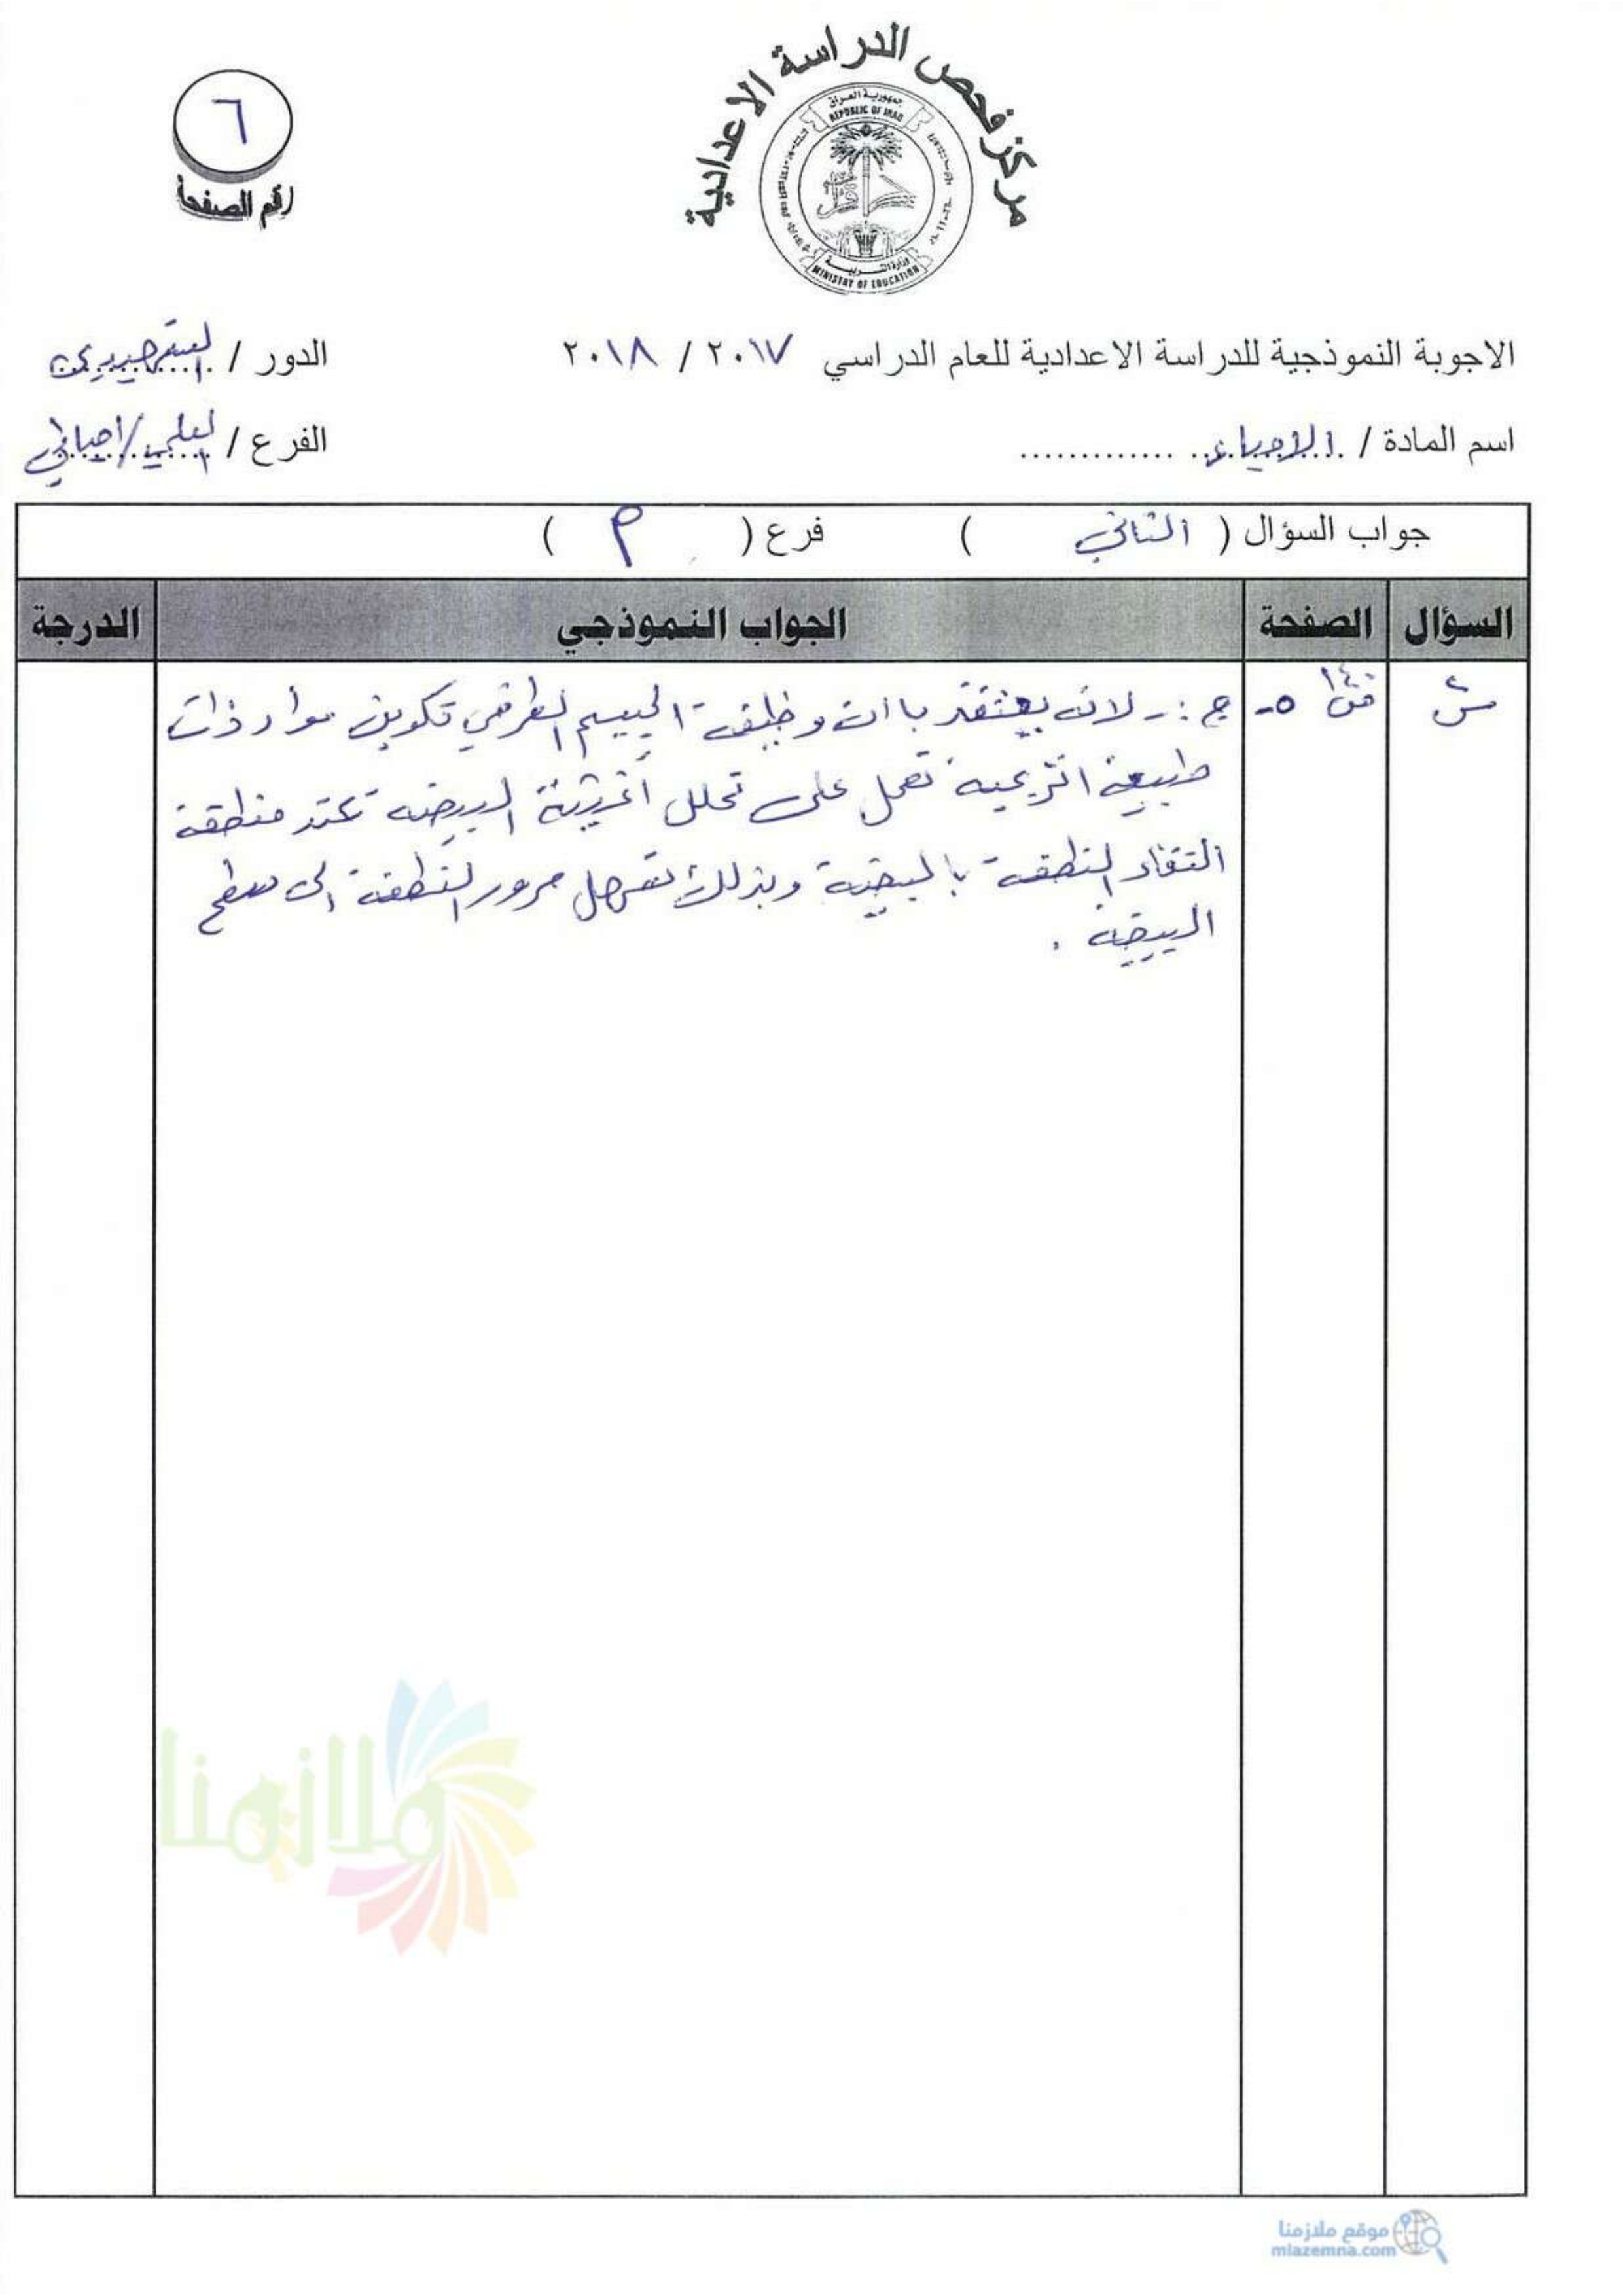 مركز فحص الدراسة الاعدادية
جمهورية العراق
REPUBLIC OF IRAQ
وزارة التربية
MINISTRY OF EDUCATION
٦
رقم الصفحة
الاجوبة النموذجية للدراسة الاعدادية للعام الدراسي ٢٠١٧ / ٢٠١٨
الدور / التمهيدي
اسم المادة / الاحياء
الفرع / العلمي/احيائي
جواب السؤال ( الثاني ) فرع ( P )
السؤال الصفحة الجواب النموذجي الدرجة
٥- ج :- لانه يعتقد باان وظيفة الجسيم الطرفي تكوين مواد ذات
طبيعة انزيمية تعمل على تحلل أغشية البيضة عند منطقة
التقاء النطفة بالبيضة وبذلك تسهل مرور النطفة الى سطح
البيضة .
ملازمنا
موقع ملازمنا
mlazemna.com